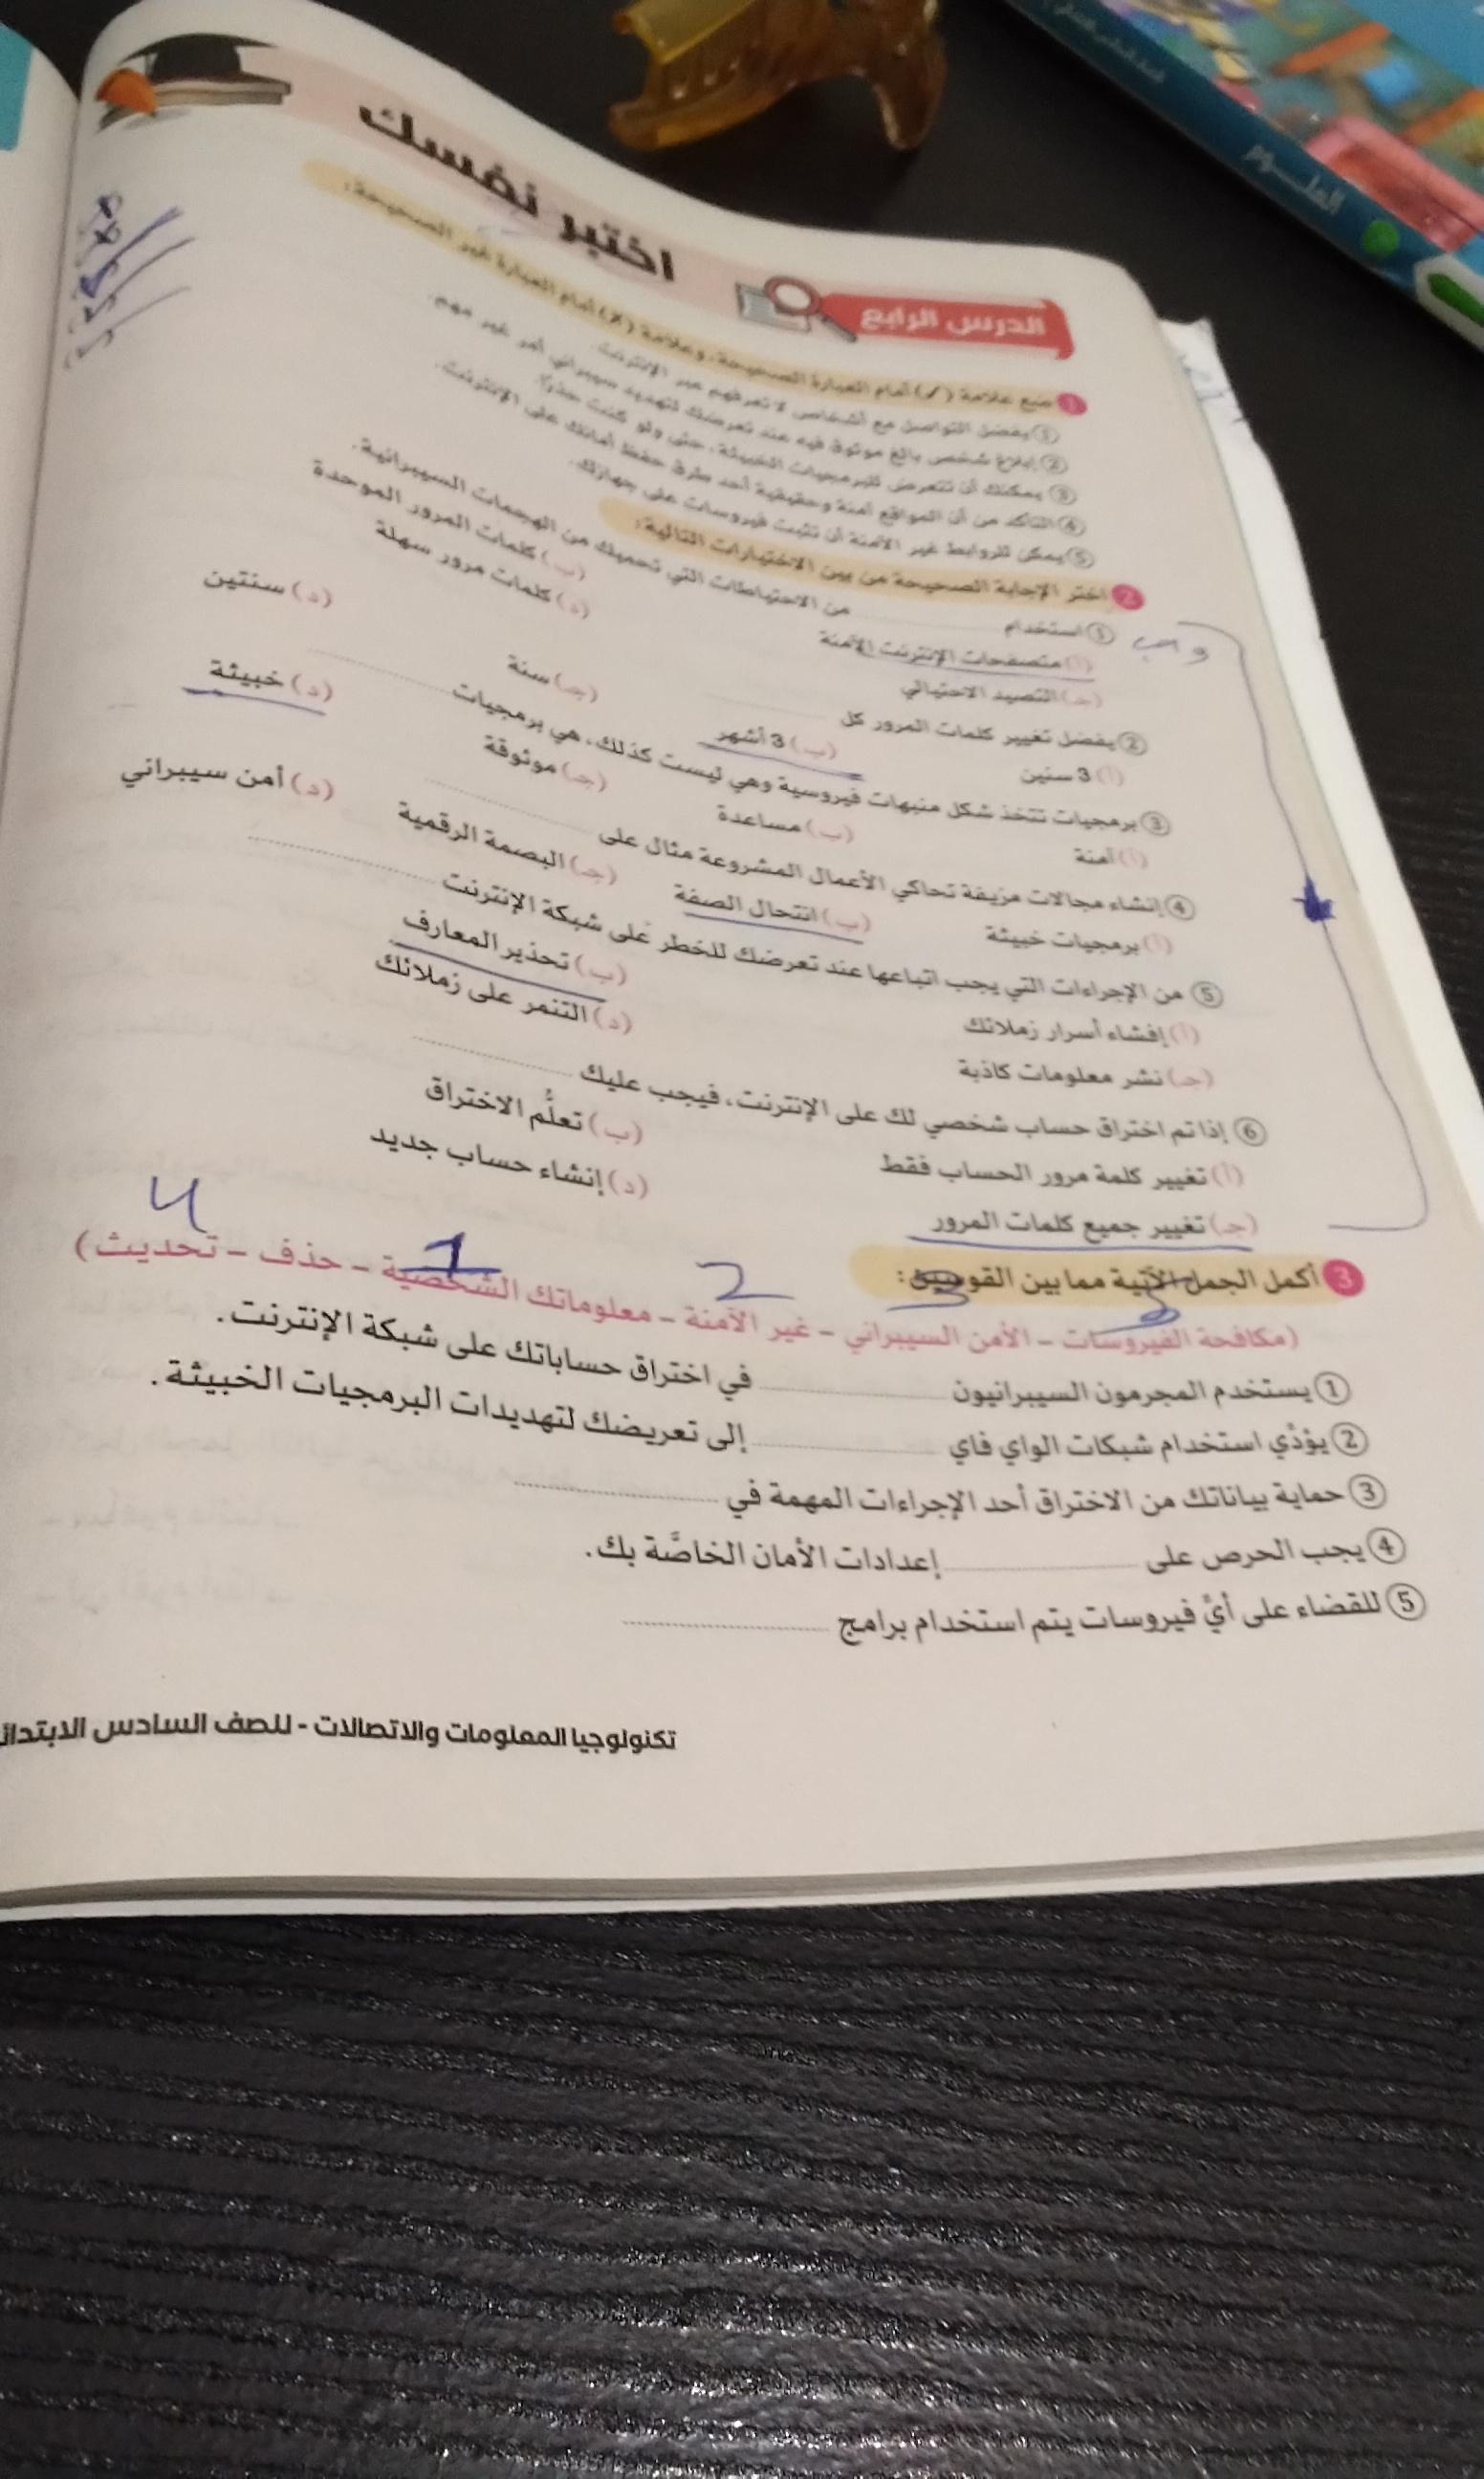 العلوم
اختبر نفسك
الدرس الرابع
1 ضع علامة (✓) أمام العبارة الصحيحة، وعلامة (✗) أمام العبارة غير الصحيحة:
① يفضل التواصل مع أشخاص لا تعرفهم عبر الإنترنت.
② إبلاغ شخص بالغ موثوق فيه عند تعرضك لتهديد سيبراني أمر غير مهم.
③ يمكنك أن تتعرض للبرمجيات الخبيثة، حتى ولو كنت حذرًا.
④ التأكد من أن المواقع آمنة وحقيقية أحد طرق حفظ أمانك على الإنترنت.
⑤ يمكن للروابط غير الآمنة أن تثبت فيروسات على جهازك.
2 اختر الإجابة الصحيحة من بين الاختيارات التالية:
واجب
① استخدام ............ من الاحتياطات التي تحميك من الهجمات السيبرانية.
(أ) متصفحات الإنترنت الآمنة (ب) كلمات المرور الموحدة
(جـ) التصيد الاحتيالي (د) كلمات مرور سهلة
② يفضل تغيير كلمات المرور كل ............
(أ) 3 سنين (ب) 3 أشهر (جـ) سنة (د) سنتين
③ برمجيات تتخذ شكل منبهات فيروسية وهي ليست كذلك، هي برمجيات ............
(أ) آمنة (ب) مساعدة (جـ) موثوقة (د) خبيثة
④ إنشاء مجالات مزيفة تحاكي الأعمال المشروعة مثال على ............
(أ) برمجيات خبيثة (ب) انتحال الصفة (جـ) البصمة الرقمية (د) أمن سيبراني
⑤ من الإجراءات التي يجب اتباعها عند تعرضك للخطر على شبكة الإنترنت ............
(أ) إفشاء أسرار زملائك (ب) تحذير المعارف
(جـ) نشر معلومات كاذبة (د) التنمر على زملائك
⑥ إذا تم اختراق حساب شخصي لك على الإنترنت، فيجب عليك ............
(أ) تغيير كلمة مرور الحساب فقط (ب) تعلُّم الاختراق
(جـ) تغيير جميع كلمات المرور (د) إنشاء حساب جديد
3 أكمل الجمل الآتية مما بين القوسين:
3 2 1 4
(مكافحة الفيروسات – الأمن السيبراني – غير الآمنة – معلوماتك الشخصية – حذف – تحديث)
① يستخدم المجرمون السيبرانيون ............ في اختراق حساباتك على شبكة الإنترنت.
② يؤدِّي استخدام شبكات الواي فاي ............ إلى تعريضك لتهديدات البرمجيات الخبيثة.
③ حماية بياناتك من الاختراق أحد الإجراءات المهمة في ............
④ يجب الحرص على ............ إعدادات الأمان الخاصَّة بك.
⑤ للقضاء على أيِّ فيروسات يتم استخدام برامج ............
تكنولوجيا المعلومات والاتصالات - للصف السادس